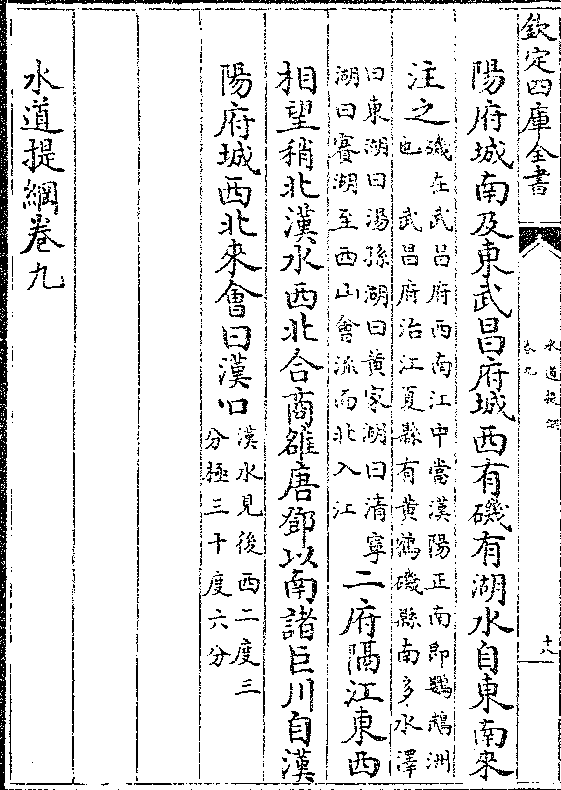 欽定四庫全書
水道提綱
卷九
十八
陽府城南及東武昌府城西有磯有湖水自東南來
注之
磯在武昌府西南江中當漢陽正南即鸚鵡洲
也武昌府治江夏縣有黃鶴磯縣南多水澤
曰東湖曰湯孫湖曰黃家湖曰清寧
湖曰賽湖至西山會流而北入江
二府隔江東西
相望稍北漢水西北合商雒唐鄧以南諸巨川自漢
陽府城西北來會曰漢口
漢水見後西二度三
分極三十度六分
水道提綱卷九